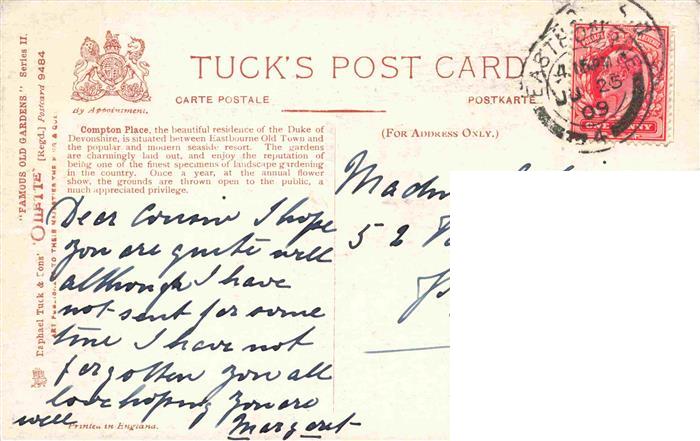 "FAMOUS OLD GARDENS." Series II.
"OILETTE" [Regd.] Postcard 9484
Raphael Tuck & Sons'
ART PUBLISHERS TO THEIR MAJESTIES THE KING & QUEEN
By Appointment.
TUCK'S POST CARD
CARTE POSTALE
POSTKARTE
(FOR ADDRESS ONLY.)
Compton Place, the beautiful residence of the Duke of
Devonshire, is situated between Eastbourne Old Town and
the popular and modern seaside resort. The gardens
are charmingly laid out, and enjoy the reputation of
being one of the finest specimens of landscape gardening
in the country. Once a year, at the annual flower
show, the grounds are thrown open to the public, a
much appreciated privilege.
Dear Cousin I hope
you are quite well
although I have
not sent for some
time I have not
forgotten you all
love hoping you are
well Margaret
Printed in England.
52
EASTBOURNE
25
09